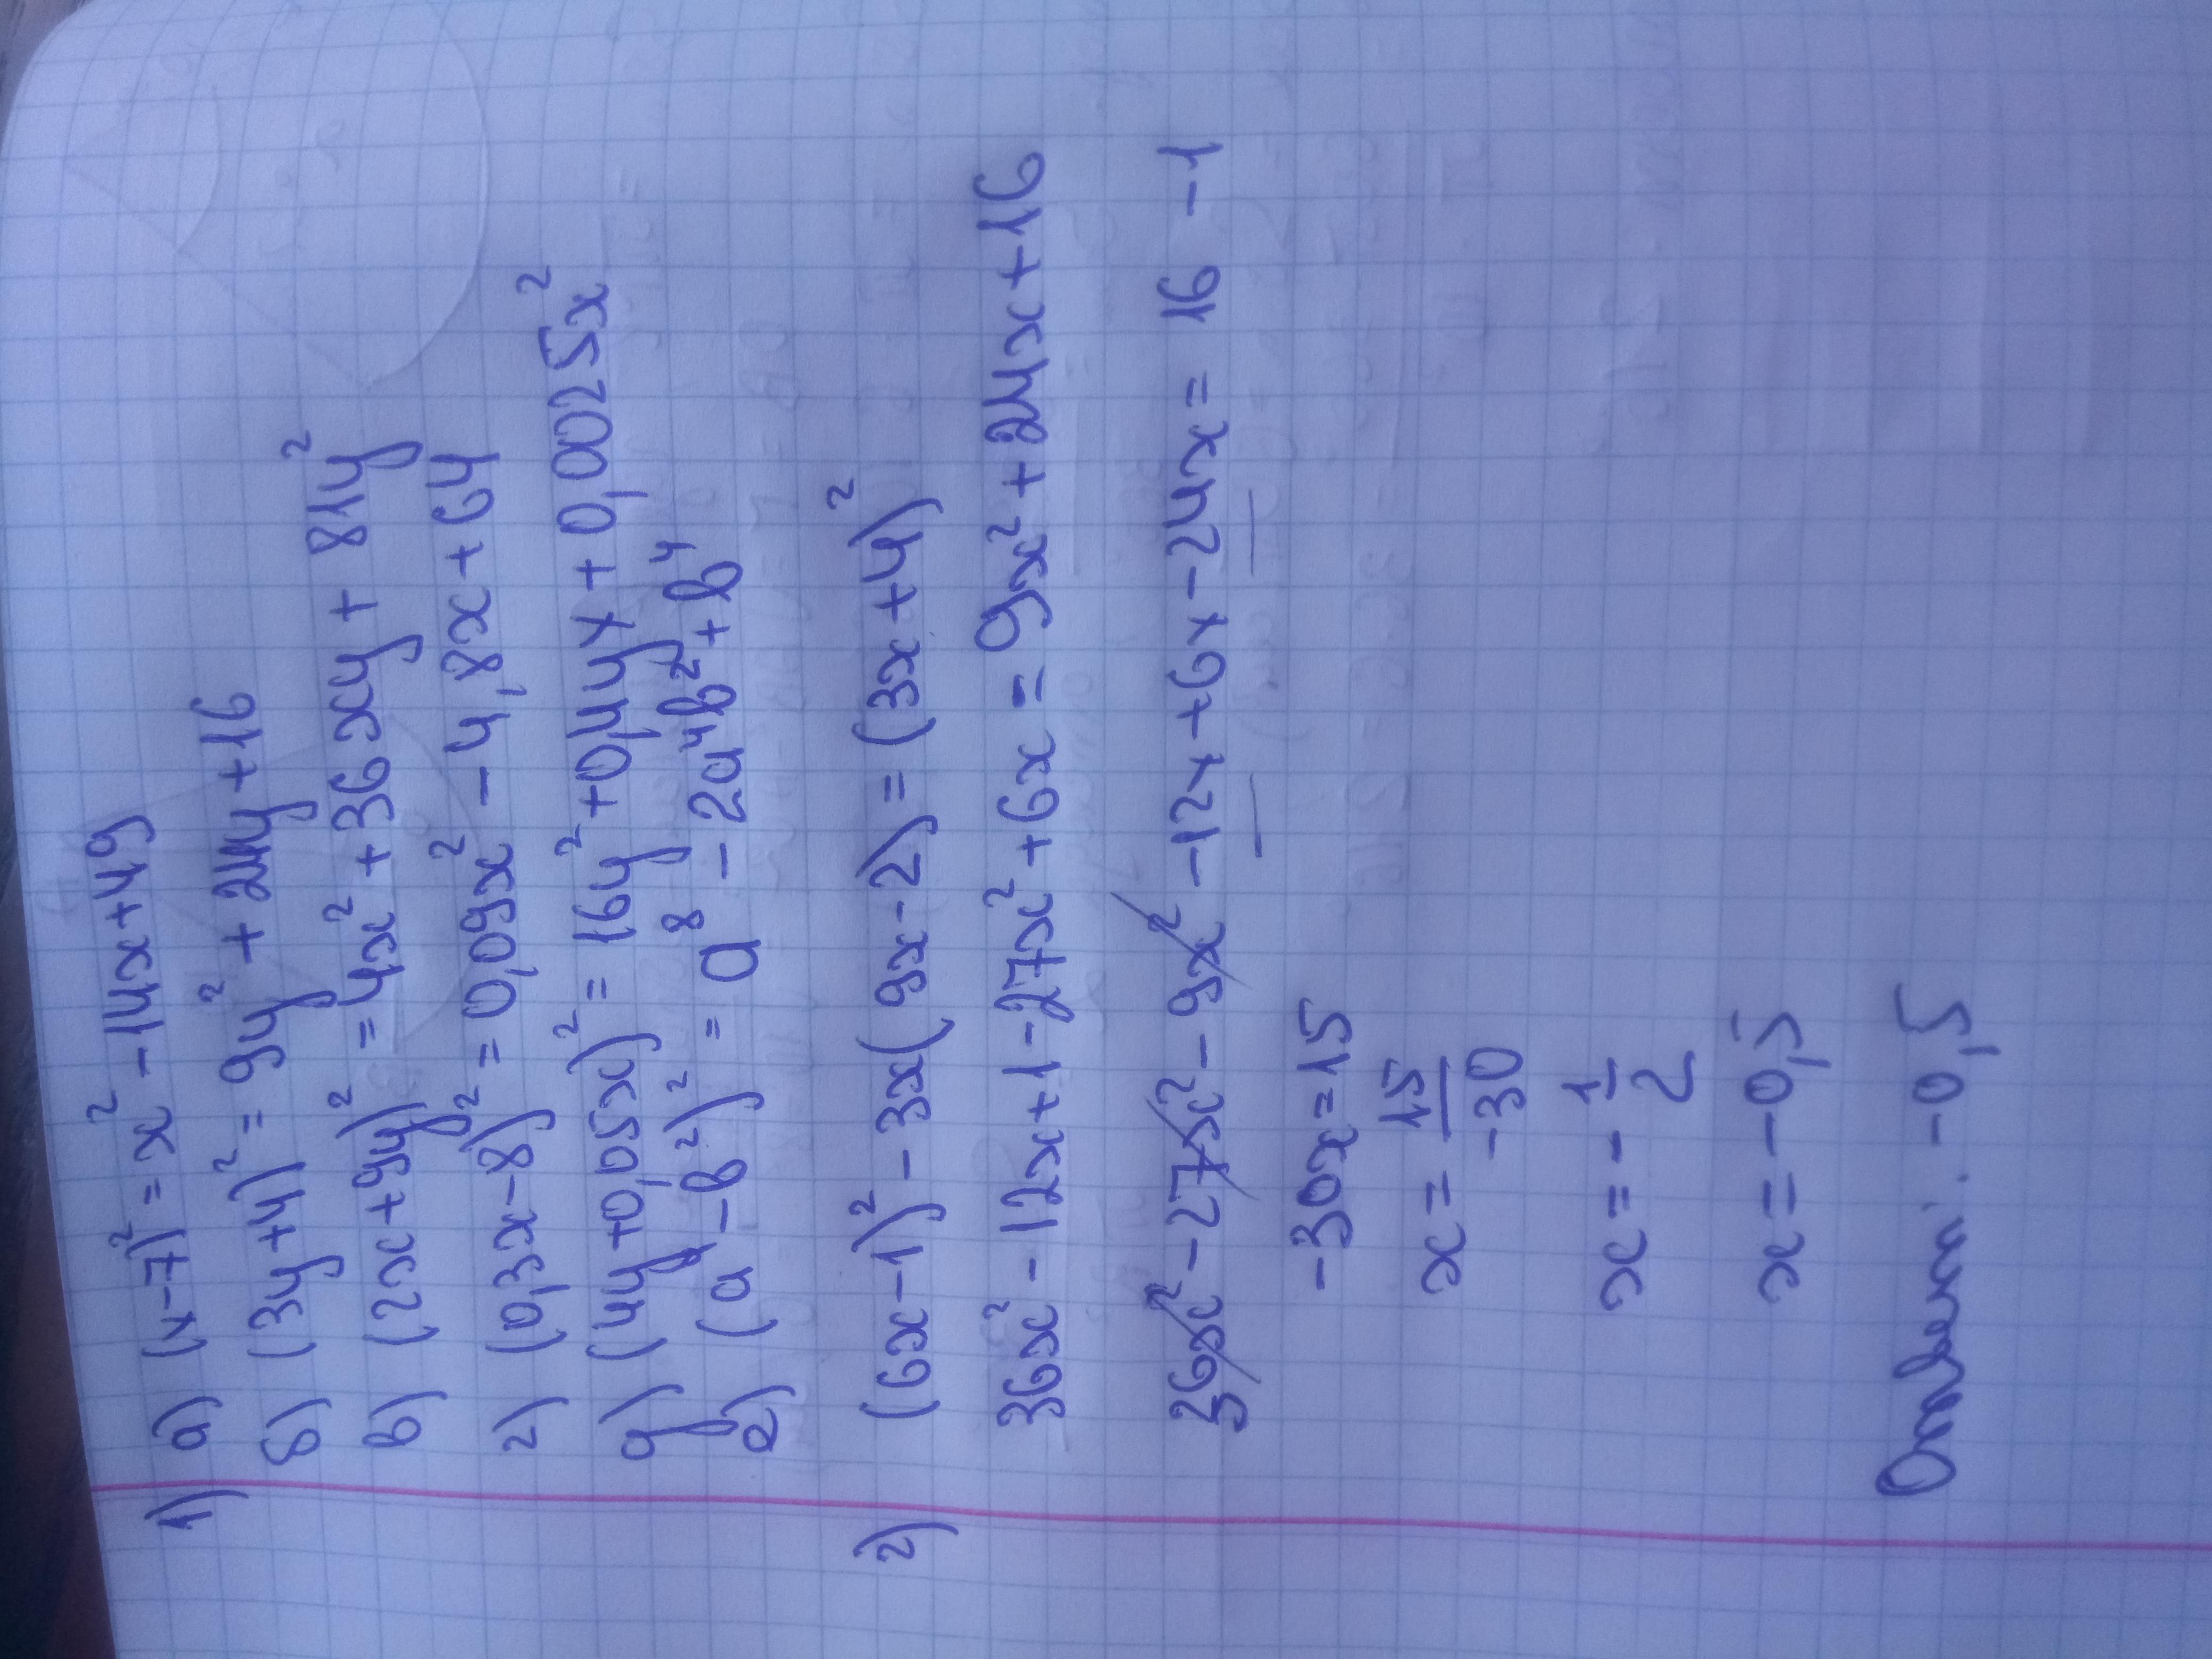 1) а) (x-7)² = x² - 14x + 49
б) (3y+4)² = 9y² + 24y + 16
в) (2x+9y)² = 4x² + 36xy + 81y²
г) (0,3x-8)² = 0,09x² - 4,8x + 64
д) (4y+0,05x)² = 16y² + 0,4yx + 0,0025x²
е) (a⁴-b²)² = a⁸ - 2a⁴b² + b⁴
2) (6x-1)² - 3x(9x-2) = (3x+4)²
36x² - 12x + 1 - 27x² + 6x = 9x² + 24x + 16
36x² - 27x² - 9x² - 12x + 6x - 24x = 16 - 1
-30x = 15
x = 15/-30
x = - 1/2
x = -0,5
Ответ: -0,5